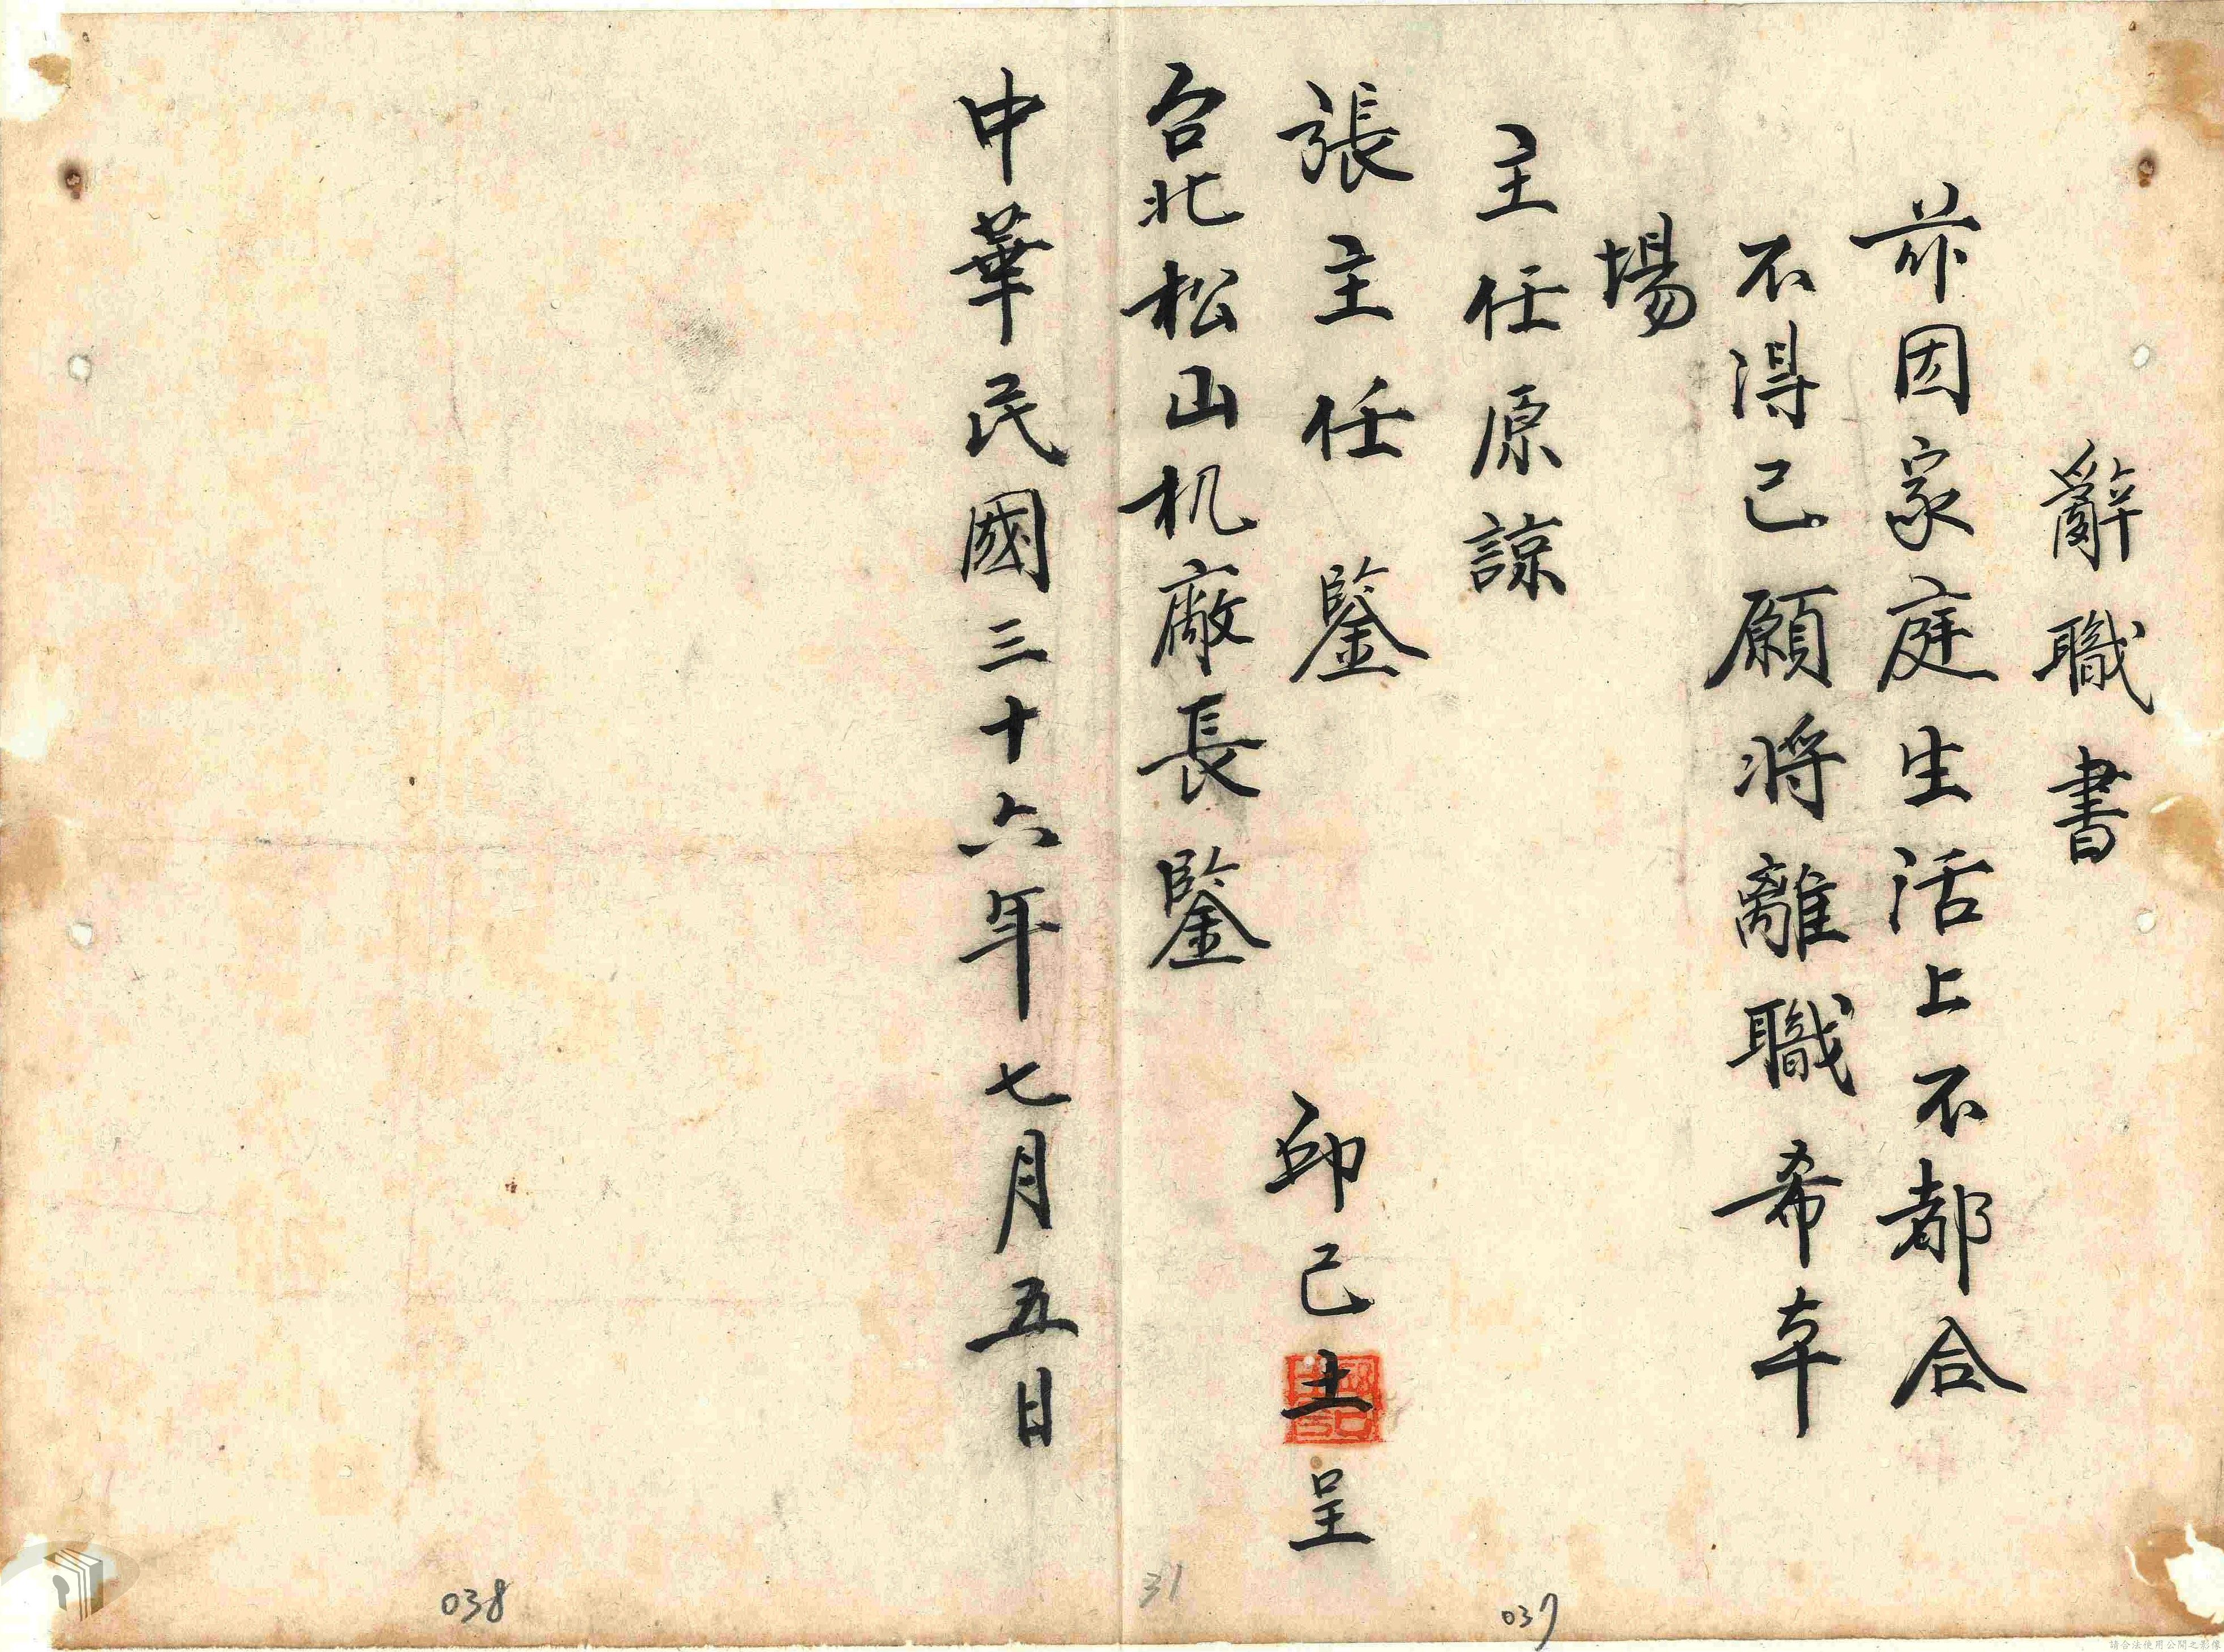 辭職書
茲因家庭生活上不都合
不得己願將離職希本
場
主任原諒
張主任 鑒
邱己土呈
台北松山机廠長鑒
中華民國三十六年七月五日
037
31
038
請合法使用公開之影像